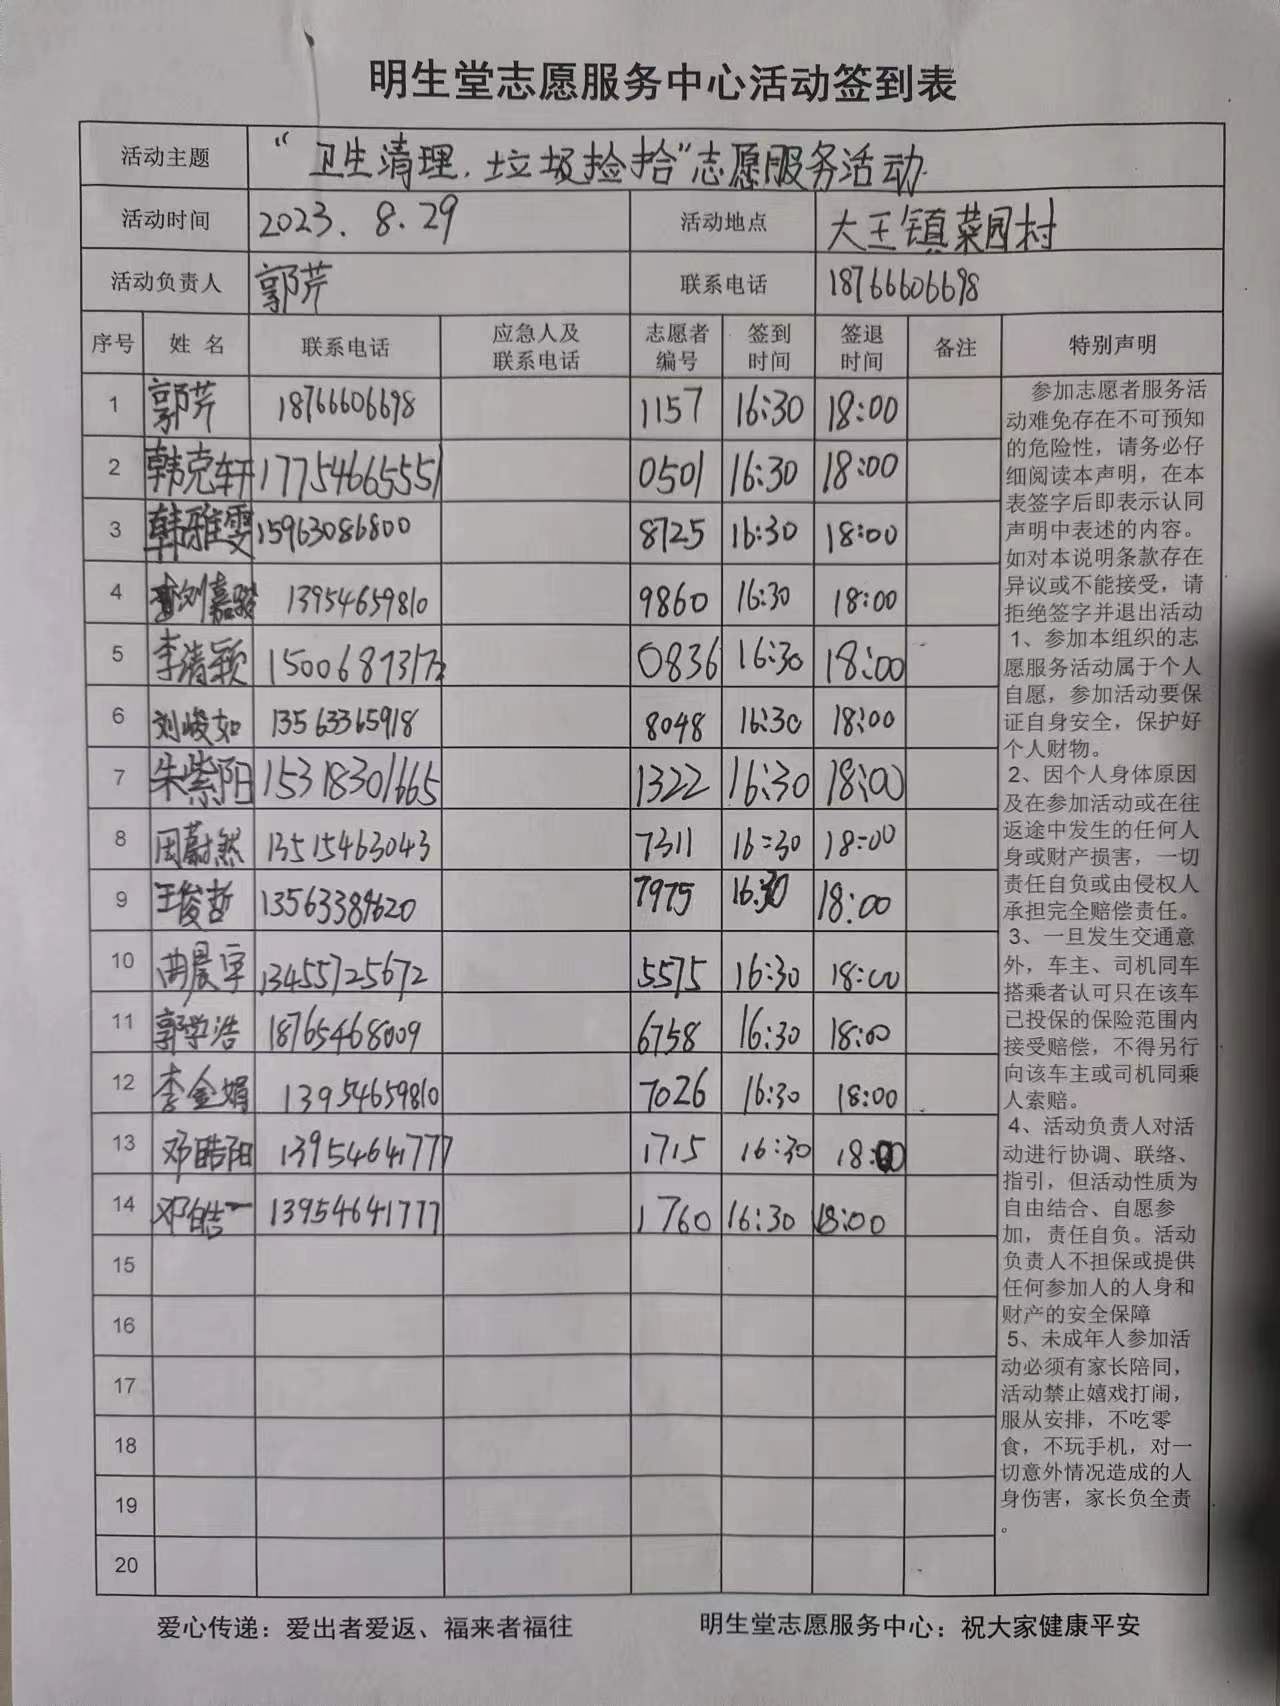 明生堂志愿服务中心活动签到表
活动主题 “卫生清理,垃圾捡拾”志愿服务活动
活动时间 2023.8.29 活动地点 大王镇菜园村
活动负责人 郭芹 联系电话 18766606698
序号 姓名 联系电话 应急人及联系电话 志愿者编号 签到时间 签退时间 备注 特别声明
1 郭芹 18766606698 1157 16:30 18:00
2 韩克轩 17754665551 0501 16:30 18:00
3 韩雅雯 15963086800 8725 16:30 18:00
4 刘嘉 13954659810 9860 16:30 18:00
5 李清颖 15006873172 0836 16:30 18:00
6 刘峻如 13563365918 8048 16:30 18:00
7 朱紫阳 15318301665 1322 16:30 18:00
8 周蔚然 13515463043 7311 16:30 18:00
9 王俊哲 13563389620 7975 16:30 18:00
10 曲晨宇 13455725672 5575 16:30 18:00
11 郭学浩 18765468009 6758 16:30 18:00
12 李金娟 13954659810 7026 16:30 18:00
13 邓皓阳 13954641777 1715 16:30 18:00
14 邓皓一 13954641777 1760 16:30 18:00
15
16
17
18
19
20
参加志愿者服务活
动难免存在不可预知
的危险性，请务必仔
细阅读本声明，在本
表签字后即表示认同
声明中表述的内容。
如对本说明条款存在
异议或不能接受，请
拒绝签字并退出活动
1、参加本组织的志
愿服务活动属于个人
自愿，参加活动要保
证自身安全，保护好
个人财物。
2、因个人身体原因
及在参加活动或在往
返途中发生的任何人
身或财产损害，一切
责任自负或由侵权人
承担完全赔偿责任。
3、一旦发生交通意
外，车主、司机同车
搭乘者认可只在该车
已投保的保险范围内
接受赔偿，不得另行
向该车主或司机同乘
人索赔。
4、活动负责人对活
动进行协调、联络、
指引，但活动性质为
自由结合、自愿参
加，责任自负。活动
负责人不担保或提供
任何参加人的人身和
财产的安全保障
5、未成年人参加活
动必须有家长陪同，
活动禁止嬉戏打闹，
服从安排，不吃零
食，不玩手机，对一
切意外情况造成的人
身伤害，家长负全责
。
爱心传递：爱出者爱返、福来者福往 明生堂志愿服务中心：祝大家健康平安